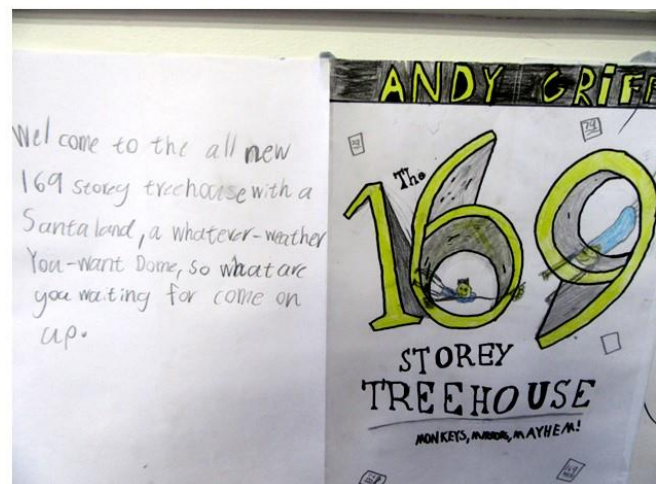 Welcome to the all new
169 storey treehouse with a
Santa land, a whatever-weather
You-want Dome, so what are
you waiting for come on
up.
ANDY GRIFF
The
169
STOREY
TREEHOUSE
MONKEYS, MIRRORS, MAYHEM!